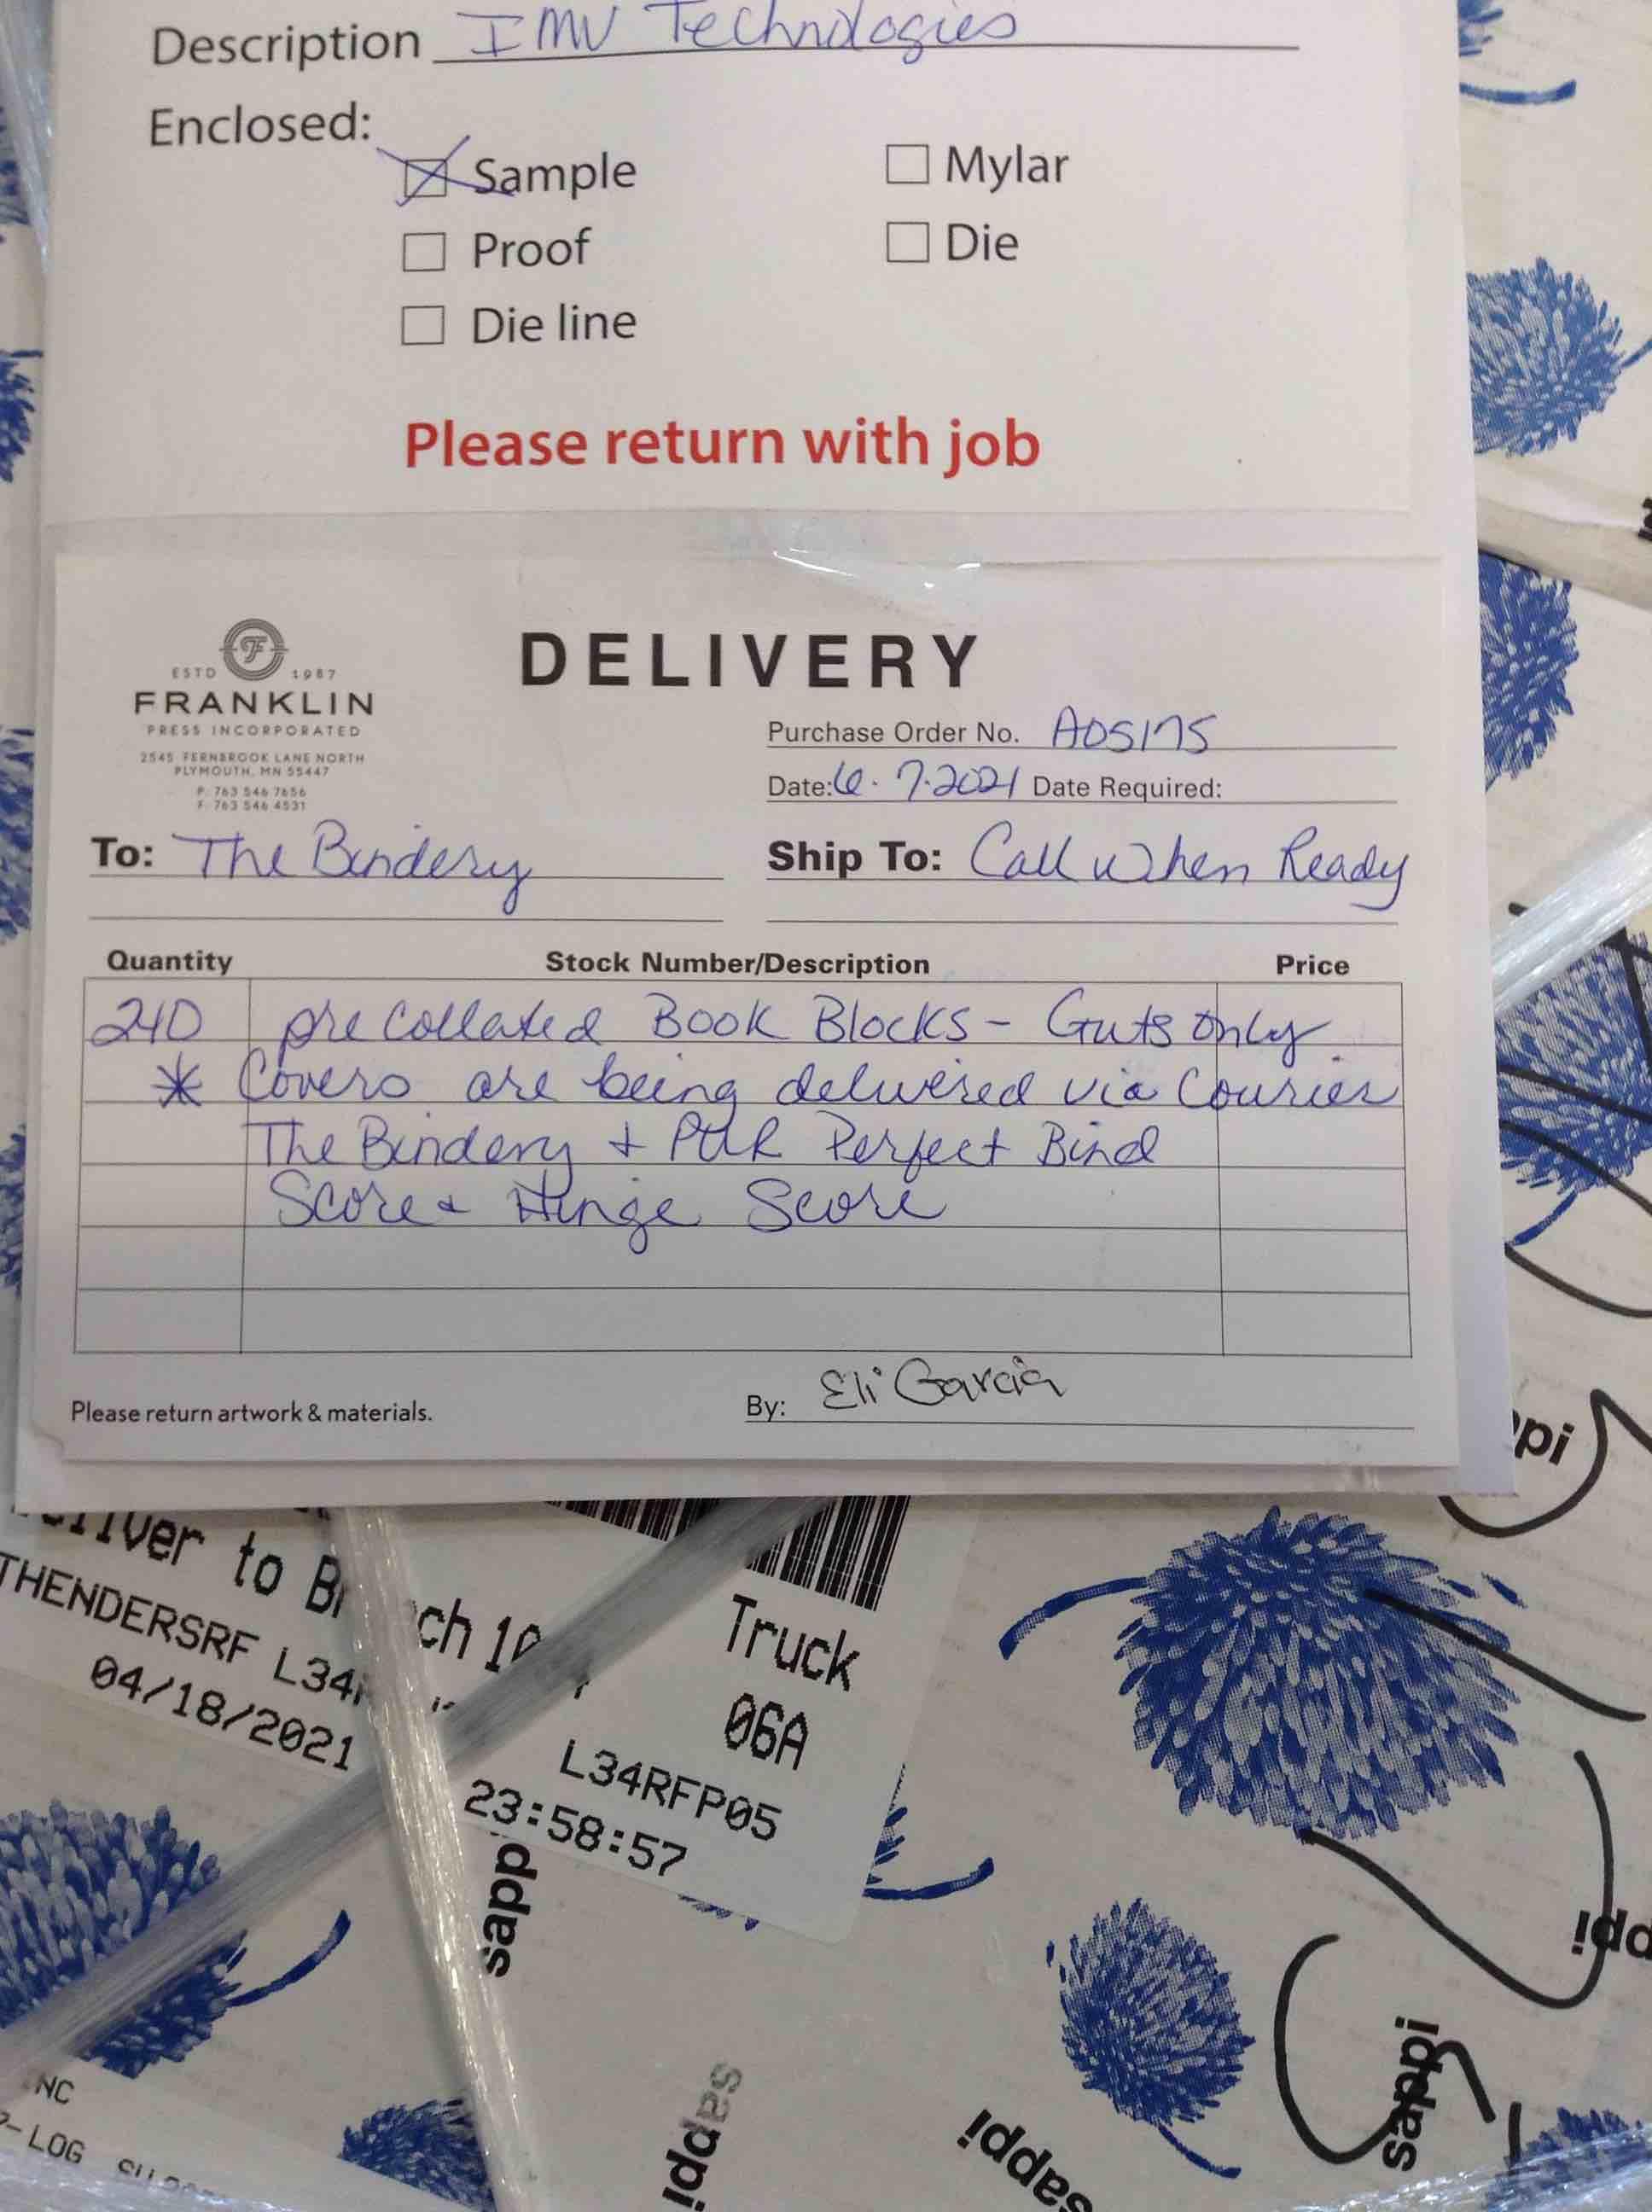 Description IMV Technologies
Enclosed:
Sample
Mylar
Proof
Die
Die line
Please return with job
ESTD 1987
FRANKLIN
PRESS INCORPORATED
2545 FERNBROOK LANE NORTH
PLYMOUTH, MN 55447
P: 763 546 7656
F: 763 546 4531
DELIVERY
Purchase Order No. A05175
Date: 6.7.2021 Date Required:
To: The Bindery
Ship To: Call When Ready
Quantity Stock Number/Description Price
240 pre Collated Book Blocks - Guts only
* Covers are being delivered via Courier
The Bindery + PUR Perfect Bind
Score + Hinge Score
Please return artwork & materials.
By: Eli Garcia
to
THENDERSRF
04/18/2021
Truck
06A
L34RFP05
23:58:57
sappi
sappi
sappi
sappi
LOG